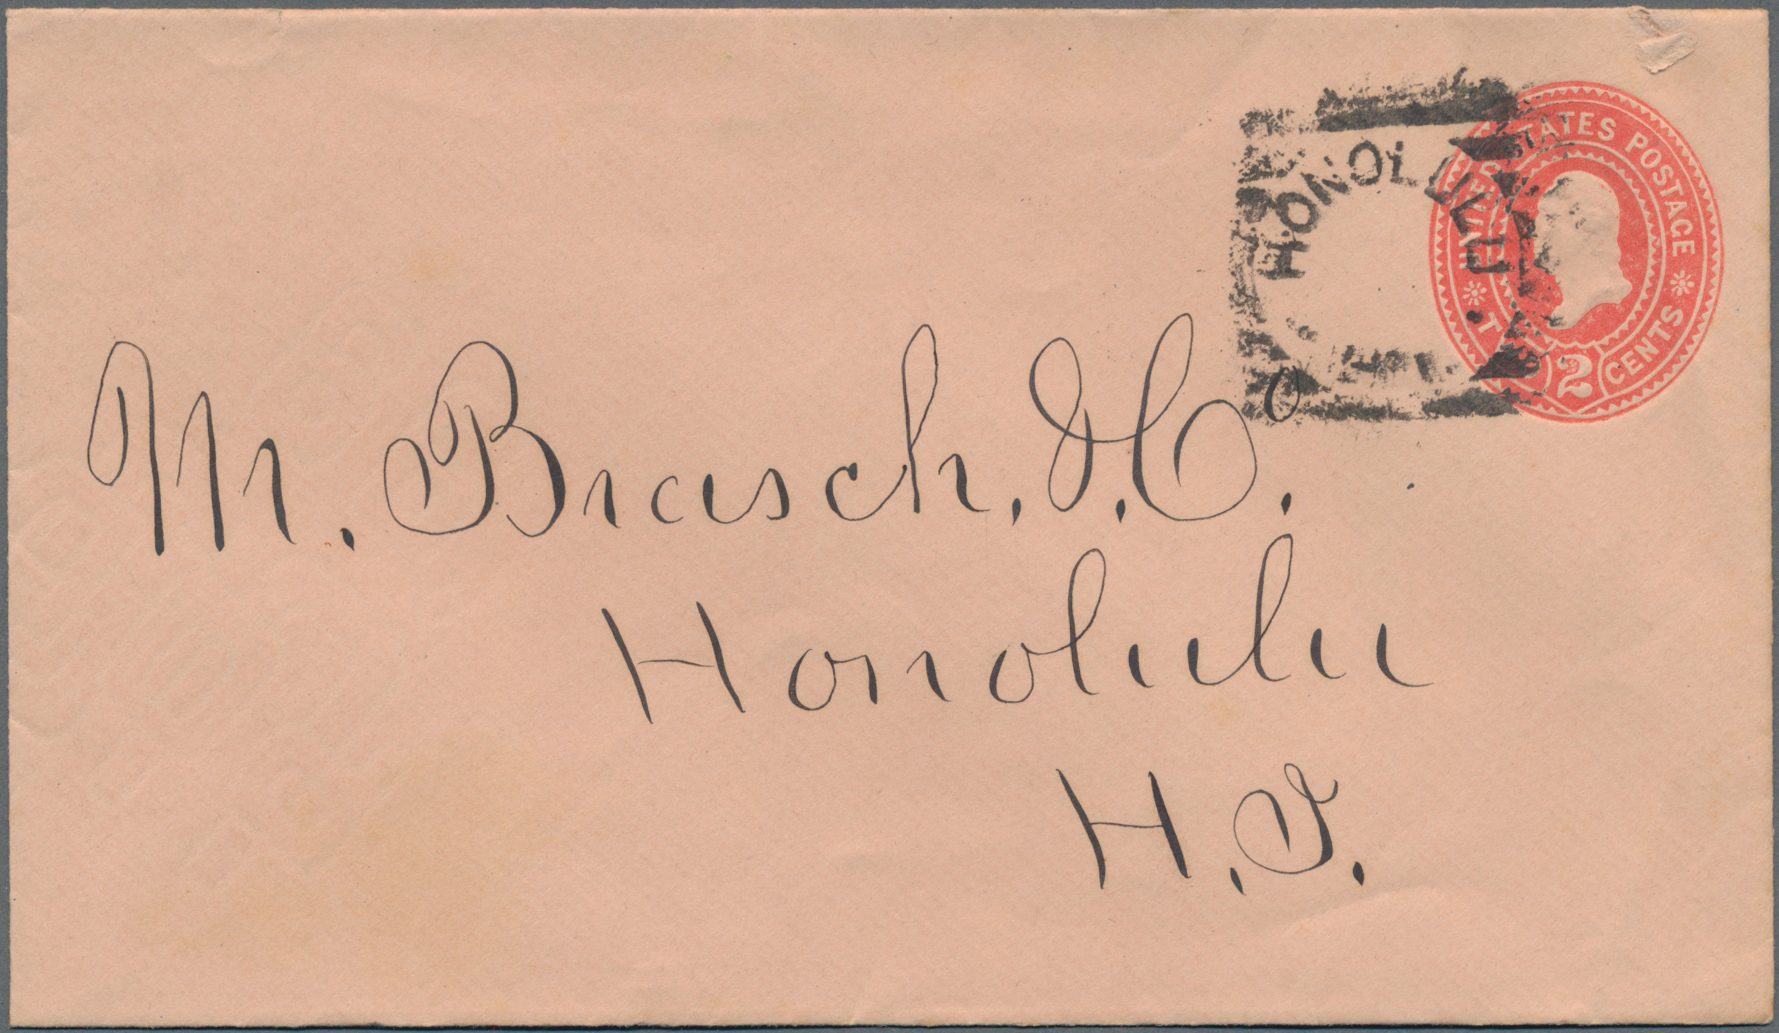 UNITED STATES POSTAGE
TWO 2 CENTS
HONOLULU.
M. Brasch, & Co.
Honolulu
H.I.